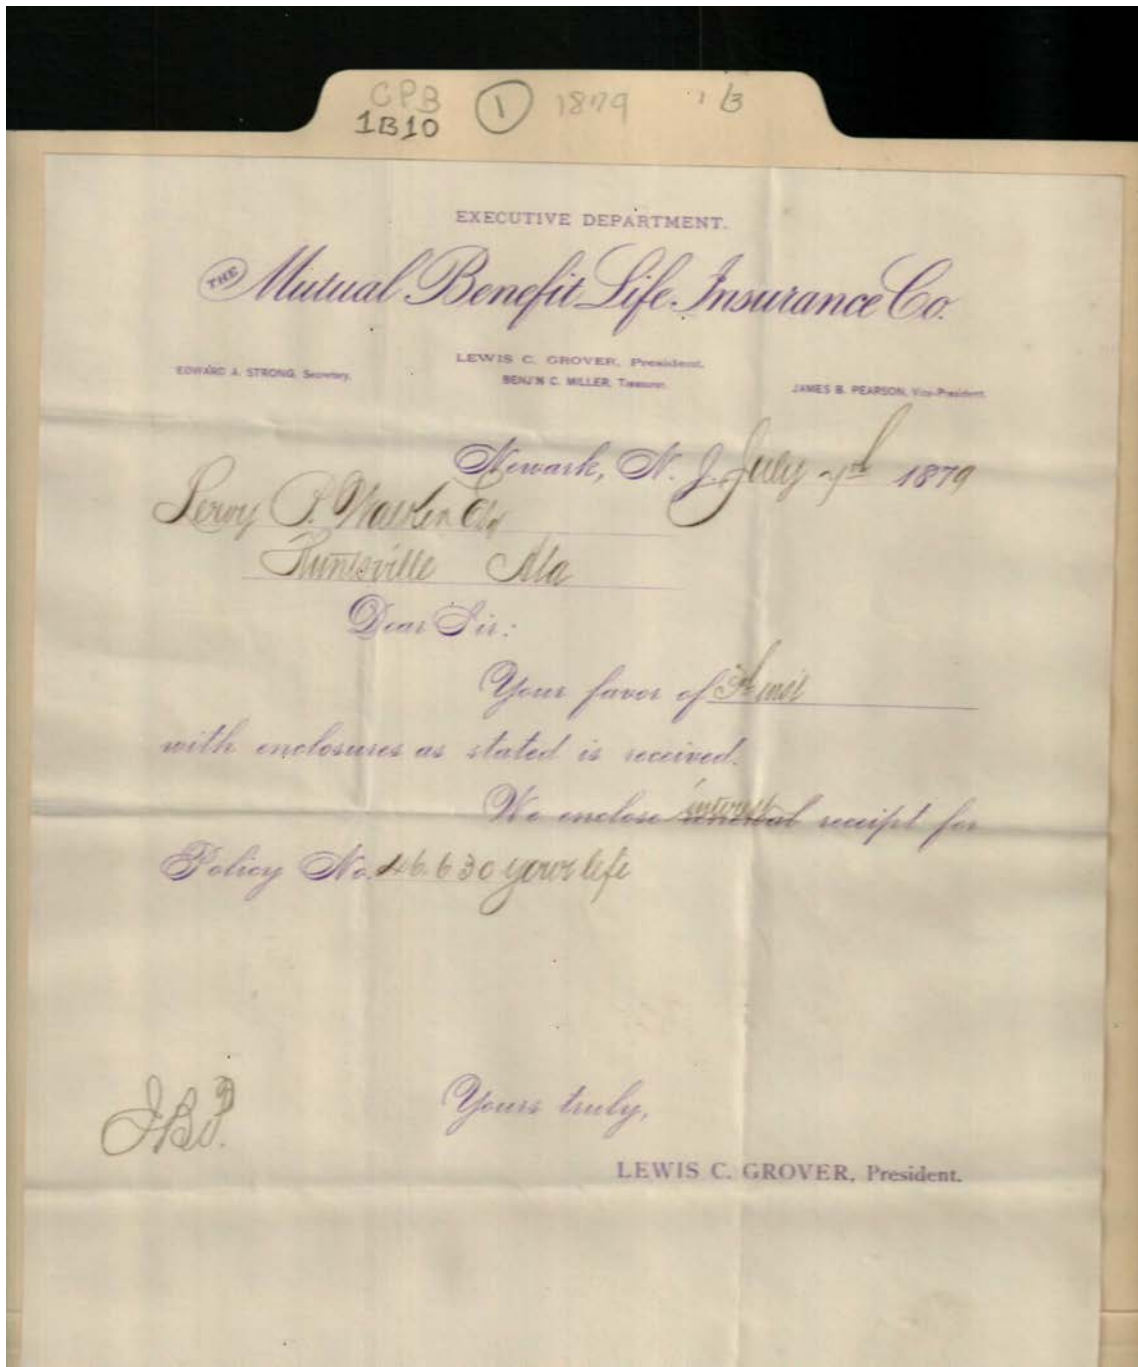 CPB 1 1879 1/3
1B10
EXECUTIVE DEPARTMENT.
THE Mutual Benefit Life Insurance Co.
LEWIS C. GROVER, President.
EDWARD A. STRONG, Secretary.
BENJ'N C. MILLER, Treasurer.
JAMES B. PEARSON, Vice-President.
Newark, N. J. July 7th 1879
Leroy P. Walker Esq
Huntsville Ala
Dear Sir:
Your favor of inst
with enclosures as stated is received.
interest
We enclose renewal receipt for
Policy No. 46.630 your life
Yours truly,
J.B.P.
LEWIS C. GROVER, President.